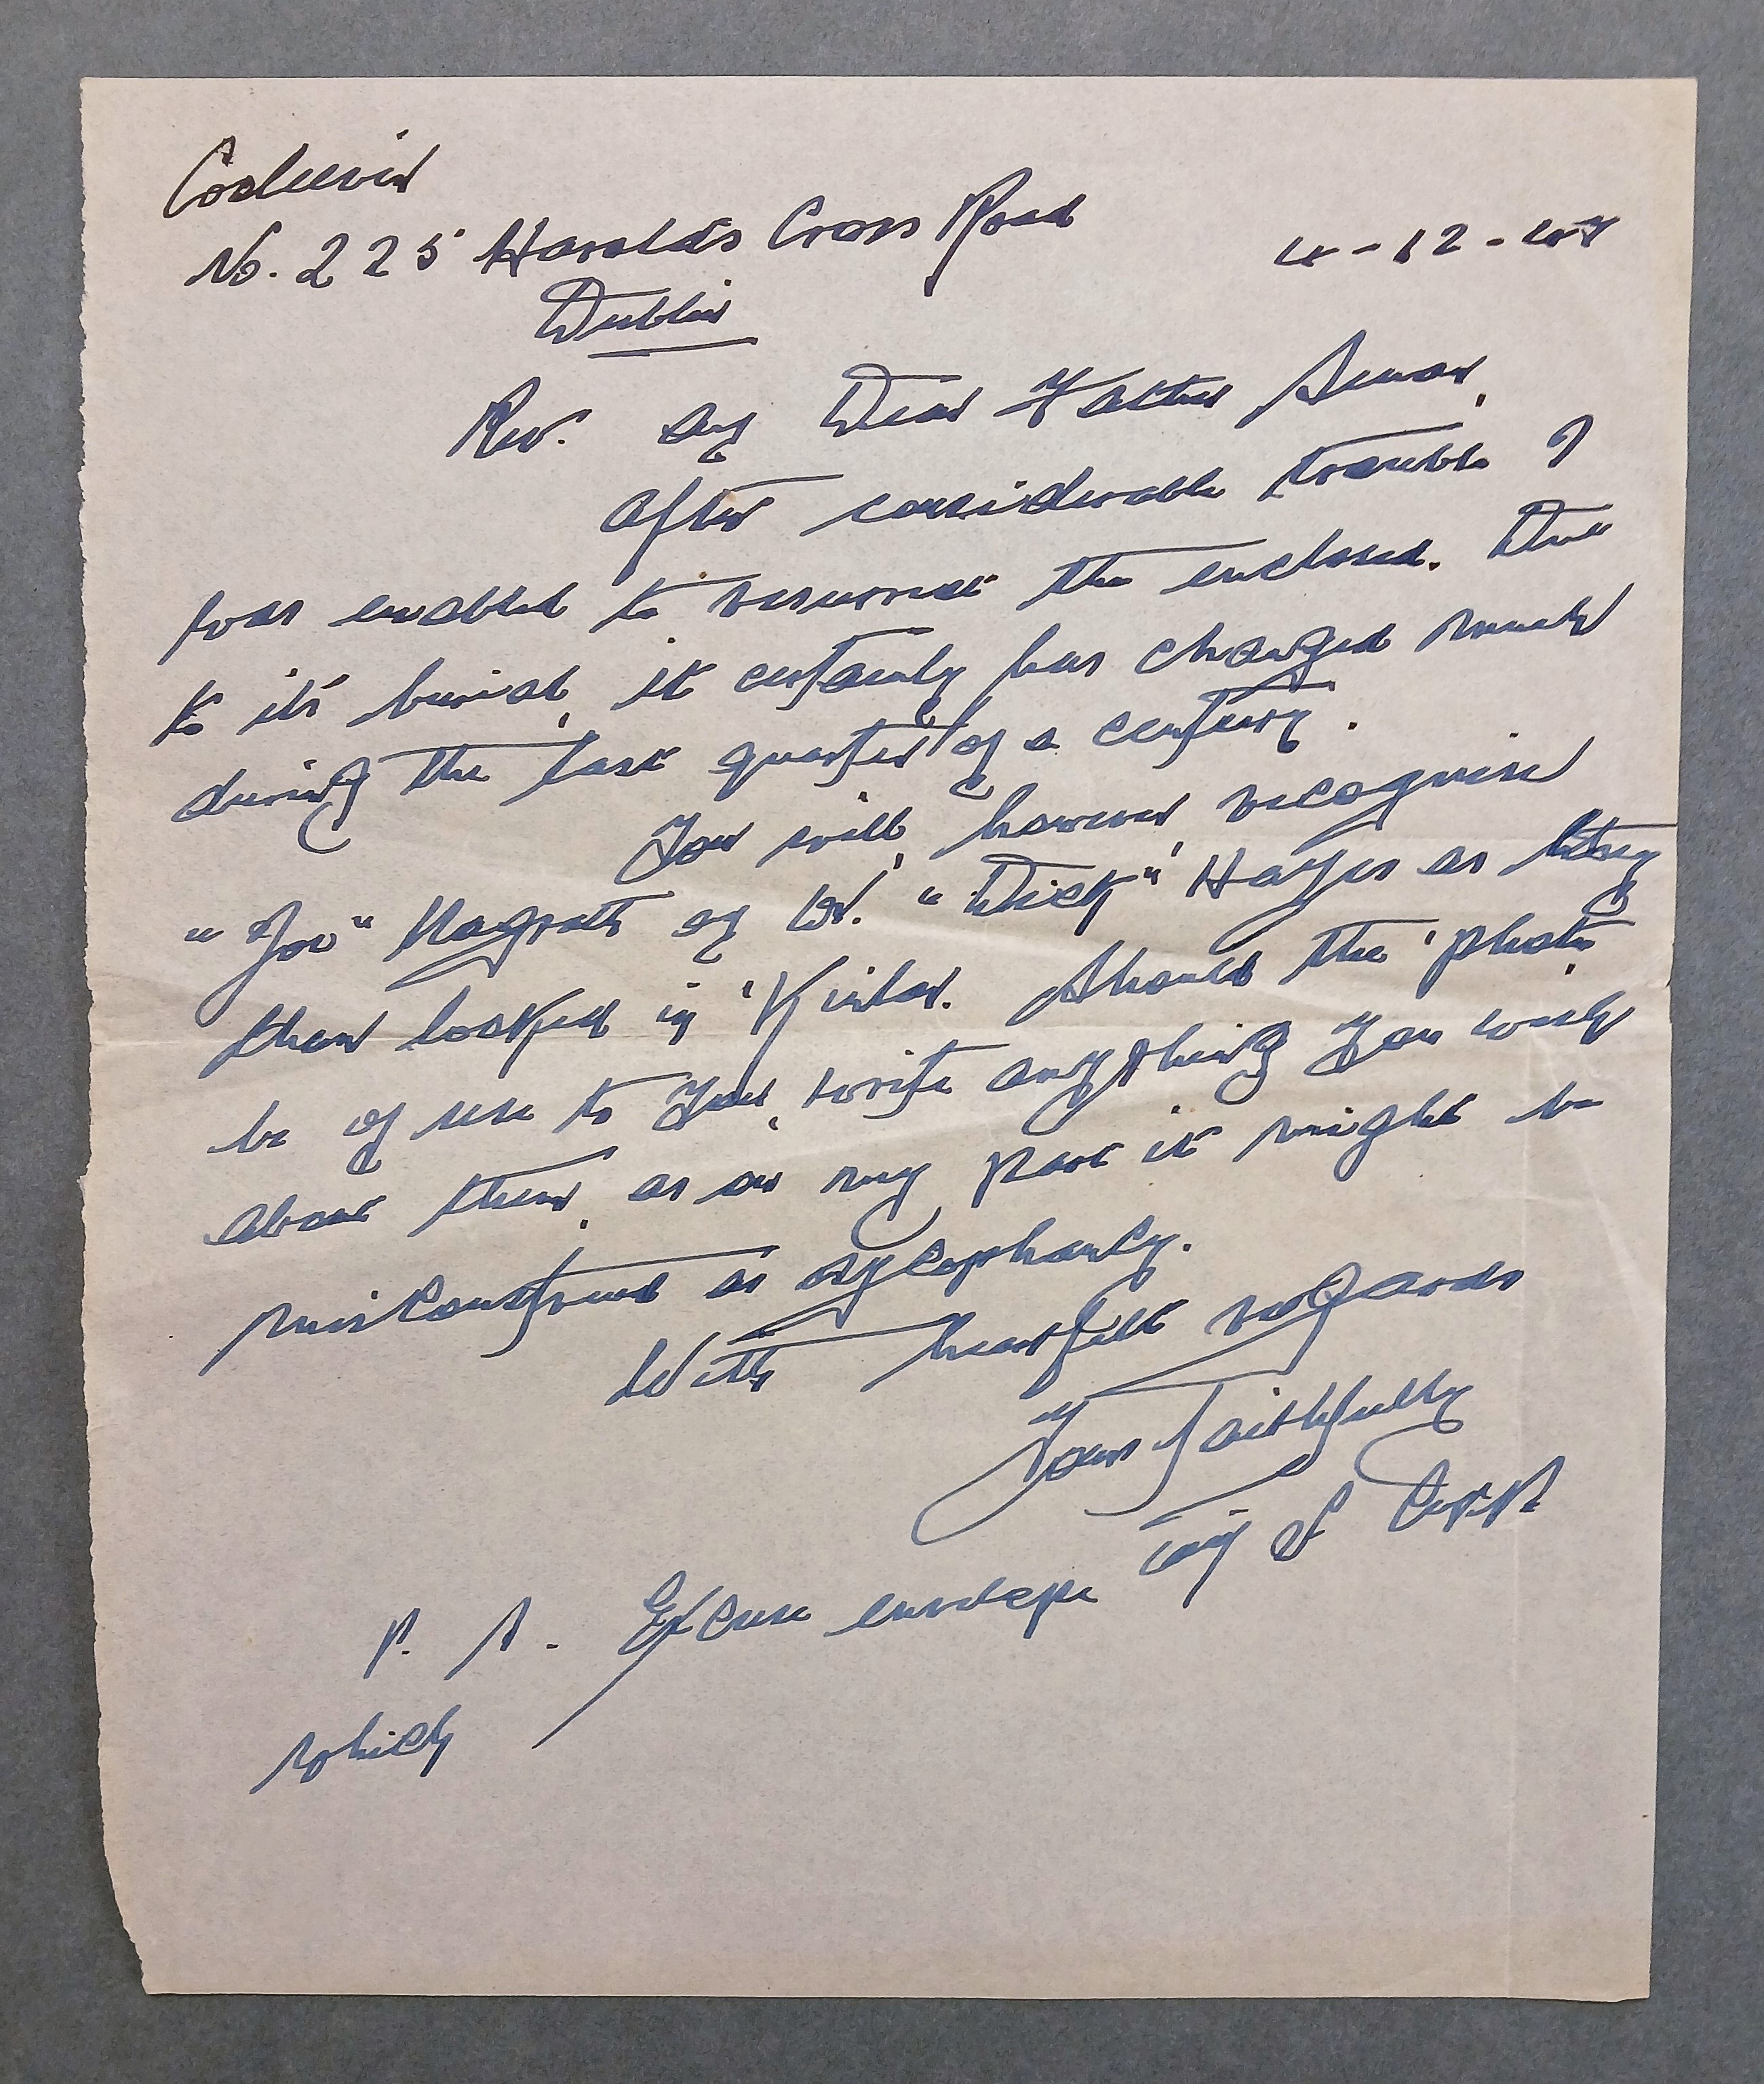 No. 225 Harold's Cross Road
4-12-47
Dublin
Rev. my Dear Father Senan,
After considerable trouble I
was enabled to resurrect the enclosed. Due
to its burial, it certainly has changed much
during the last quarter of a century.
You will, however, recognise
"Joe" Magrath my Dr. "Dick" Hayes as they
then looked in 'Kinlar. Should the 'photo
be of use to you, write anything you wish
about them, as on my part it might be
misconstrued as sycophancy.
With heartfelt regards
Yours faithfully
P. S. Excuse envelope
which